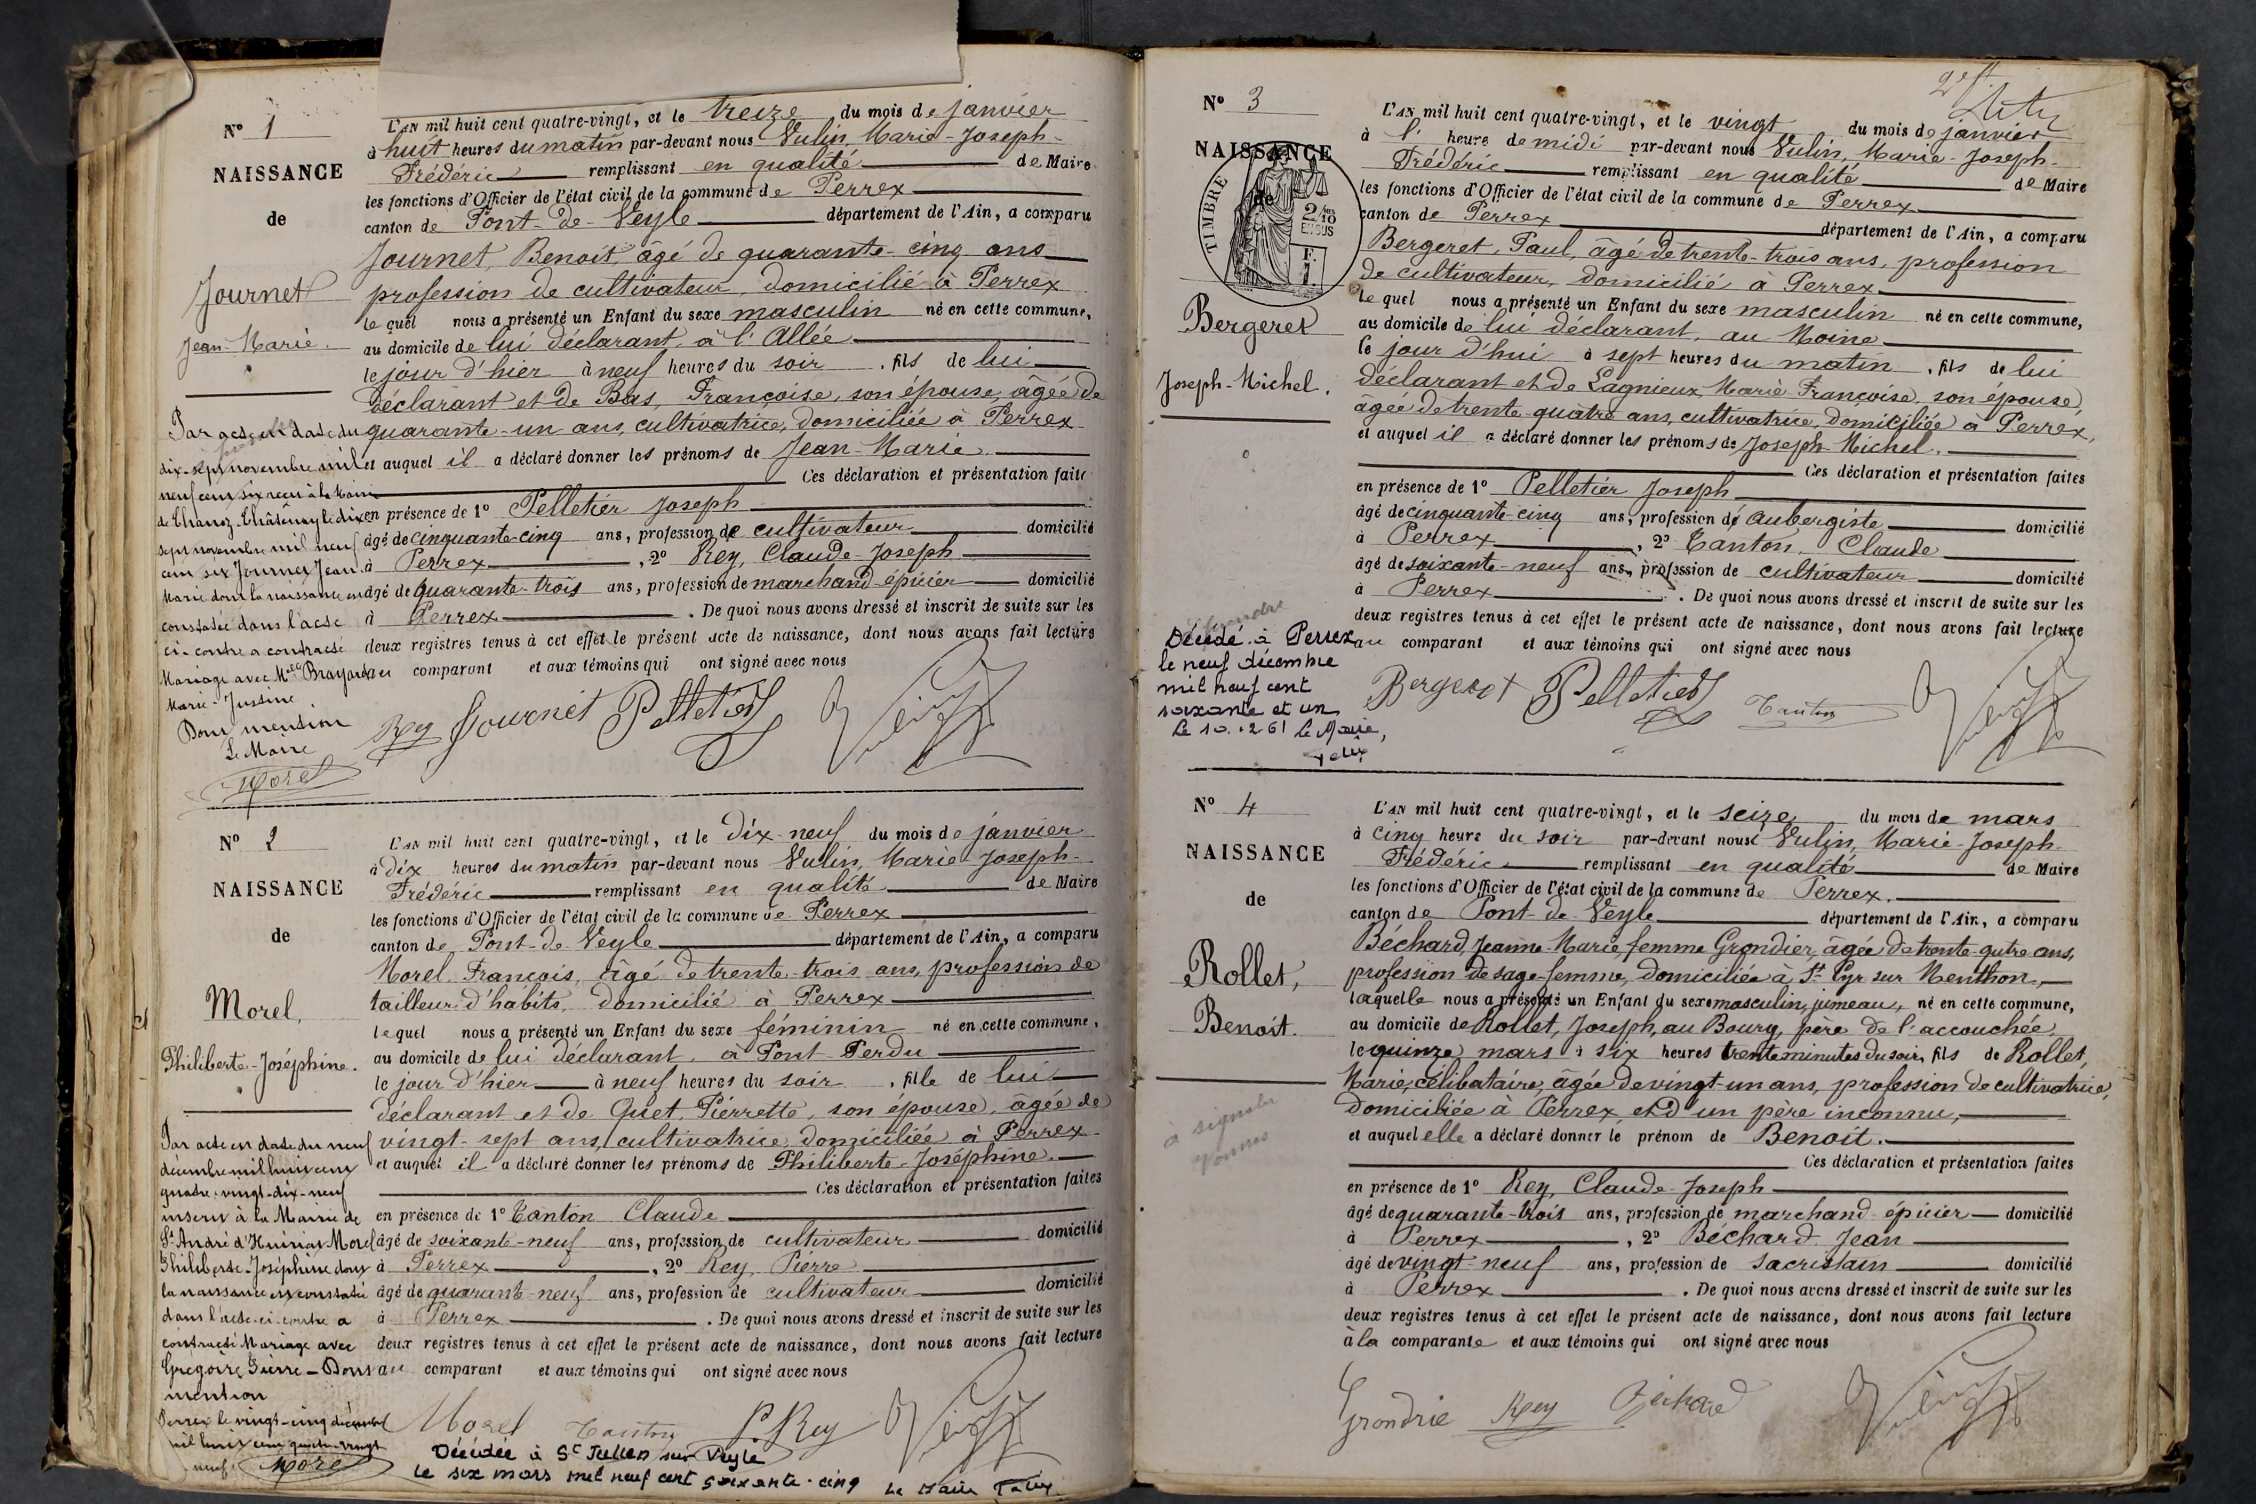 N° 1
NAISSANCE
de
Journet
Jean-Marie.
L'AN mil huit cent quatre-vingt, et le treize du mois de janvier
à huit heures du matin par-devant nous Vulin, Marie-Joseph-
Frédéric remplissant en qualité de Maire
les fonctions d'Officier de l'état civil de la commune de Perrex
canton de Pont-de-Veyle département de l'Ain, a comparu
Journet, Benoit, âgé de quarante-cinq ans
profession de cultivateur, domicilié à Perrex
lequel nous a présenté un Enfant du sexe masculin né en cette commune,
au domicile de lui déclarant, à l'Allée
le jour d'hier à neuf heures du soir, fils de lui
déclarant et de Bas, Françoise, son épouse, âgée de
quarante-un ans, cultivatrice, domiciliée à Perrex
et auquel il a déclaré donner les prénoms de Jean-Marie.
Ces déclaration et présentation faites
en présence de 1° Pelletier Joseph
âgé de cinquante-cinq ans, profession de cultivateur domicilié
à Perrex, 2° Rey, Claude-Joseph
âgé de quarante-trois ans, profession de marchand-épicier domicilié
à Perrex. De quoi nous avons dressé et inscrit de suite sur les
deux registres tenus à cet effet le présent acte de naissance, dont nous avons fait lecture
au comparant et aux témoins qui ont signé avec nous
Rey Journet Pelletier Vulin
Par acte en date du
dix-sept novembre mil
neuf cent six reçu à la Mairie
de Chanoz-Châtenay le dix
sept novembre mil neuf
cent six Journet Jean
Marie dont la naissance est
constatée dans l'acte
ci-contre a contracté
Mariage avec Mlle Brayard
Marie-Justine
Dont mention
Le Maire
Morel
N° 2
NAISSANCE
de
Morel,
Philiberte-Joséphine.
L'AN mil huit cent quatre-vingt, et le dix-neuf du mois de janvier
à dix heures du matin par-devant nous Vulin, Marie-Joseph-
Frédéric remplissant en qualité de Maire
les fonctions d'Officier de l'état civil de la commune de Perrex
canton de Pont-de-Veyle département de l'Ain, a comparu
Morel François, âgé de trente-trois ans, profession de
tailleur d'habits, domicilié à Perrex
lequel nous a présenté un Enfant du sexe féminin né en cette commune,
au domicile de lui déclarant, à Pont-Perdu
le jour d'hier à neuf heures du soir, fille de lui
déclarant et de Quet, Pierrette, son épouse, âgée de
vingt-sept ans, cultivatrice, domiciliée à Perrex
et auquel il a déclaré donner les prénoms de Philiberte-Joséphine.
Ces déclaration et présentation faites
en présence de 1° Canton Claude
âgé de soixante-neuf ans, profession de cultivateur domicilié
à Perrex, 2° Rey, Pierre
âgé de quarante-neuf ans, profession de cultivateur domicilié
à Perrex. De quoi nous avons dressé et inscrit de suite sur les
deux registres tenus à cet effet le présent acte de naissance, dont nous avons fait lecture
au comparant et aux témoins qui ont signé avec nous
Morel Canton P. Rey Vulin
Par acte en date du neuf
décembre mil huit cent
quatre-vingt-dix-neuf
inscrit à la Mairie de
St André d'Huiriat Morel
Philiberte-Joséphine dont
la naissance est constatée
dans l'acte ci-contre a
contracté Mariage avec
Gregoire Pierre - Dont
mention
Perrex le vingt-cinq décembre
mil huit cent quatre-vingt
neuf. Morel
Décédée à St Julien sur Veyle
le six mars mil neuf cent soixante-cinq Le Maire
N° 3
NAISSANCE
de
TIMBRE
2/10
EN SUS
F.
1.
Bergeret
Joseph-Michel.
L'AN mil huit cent quatre-vingt, et le vingt du mois de janvier
à l' heure de midi par-devant nous Vulin, Marie-Joseph-
Frédéric remplissant en qualité de Maire
les fonctions d'Officier de l'état civil de la commune de Perrex
canton de Perrex département de l'Ain, a comparu
Bergeret, Paul, âgé de trente-trois ans, profession
de cultivateur, domicilié à Perrex
lequel nous a présenté un Enfant du sexe masculin né en cette commune,
au domicile de lui déclarant, au Moine
le jour d'hui à sept heures du matin, fils de lui
déclarant et de Lagnieux, Marie Françoise, son épouse,
âgée de trente-quatre ans, cultivatrice, domiciliée à Perrex,
et auquel il a déclaré donner les prénoms de Joseph-Michel.
Ces déclaration et présentation faites
en présence de 1° Pelletier Joseph
âgé de cinquante-cinq ans, profession de aubergiste domicilié
à Perrex, 2° Canton, Claude
âgé de soixante-neuf ans, profession de cultivateur domicilié
à Perrex. De quoi nous avons dressé et inscrit de suite sur les
deux registres tenus à cet effet le présent acte de naissance, dont nous avons fait lecture
au comparant et aux témoins qui ont signé avec nous
Bergeret Pelletier Canton Vulin
Décédé à Perrex
le neuf décembre
mil neuf cent
soixante et un
Le 10.12 61 Le Maire,
N° 4
NAISSANCE
de
Rollet,
Benoit.
L'AN mil huit cent quatre-vingt, et le seize du mois de mars
à cinq heure du soir par-devant nous Vulin, Marie-Joseph-
Frédéric remplissant en qualité de Maire
les fonctions d'Officier de l'état civil de la commune de Perrex.
canton de Pont-de-Veyle département de l'Ain, a comparu
Béchard, Jeanne-Marie, femme Grondier, âgée de trente-qutre ans,
profession de sage-femme, domiciliée à St Cyr sur Menthon,
laquelle nous a présenté un Enfant du sexe masculin, jumeau, né en cette commune,
au domicile de Rollet, Joseph, au Bourg, père de l'accouchée
le quinze mars à six heures trente minutes du soir, fils de Rollet,
Marie, célibataire, âgée de vingt-un ans, profession de cultivatrice,
domiciliée à Perrex et d'un père inconnu,
et auquel elle a déclaré donner le prénom de Benoit.
Ces déclaration et présentation faites
en présence de 1° Rey, Claude-Joseph
âgé de quarante-trois ans, profession de marchand-épicier domicilié
à Perrex, 2° Béchard Jean
âgé de vingt-neuf ans, profession de sacristain domicilié
à Perrex. De quoi nous avons dressé et inscrit de suite sur les
deux registres tenus à cet effet le présent acte de naissance, dont nous avons fait lecture
à la comparante et aux témoins qui ont signé avec nous
Grondrie Rey Béchard Vulin
à signaler